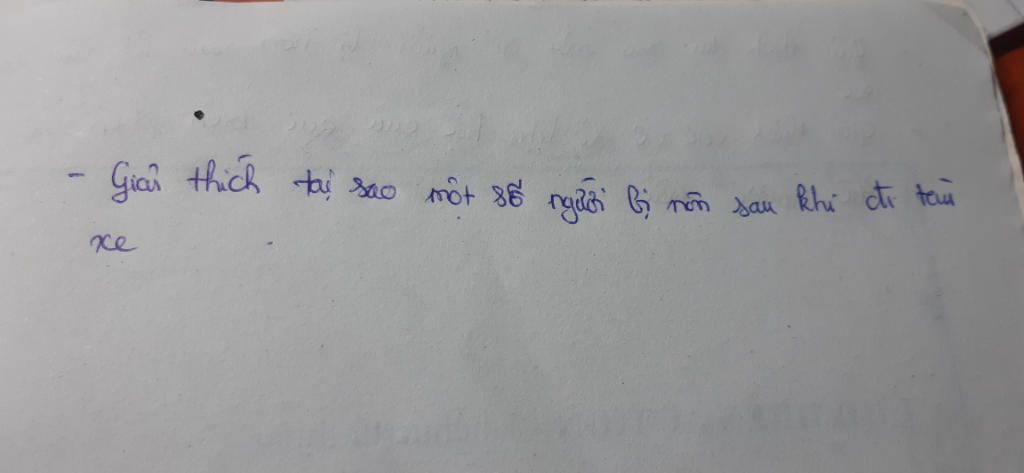 - Giải thích tại sao một số người bị nôn sau khi đi tàu
xe